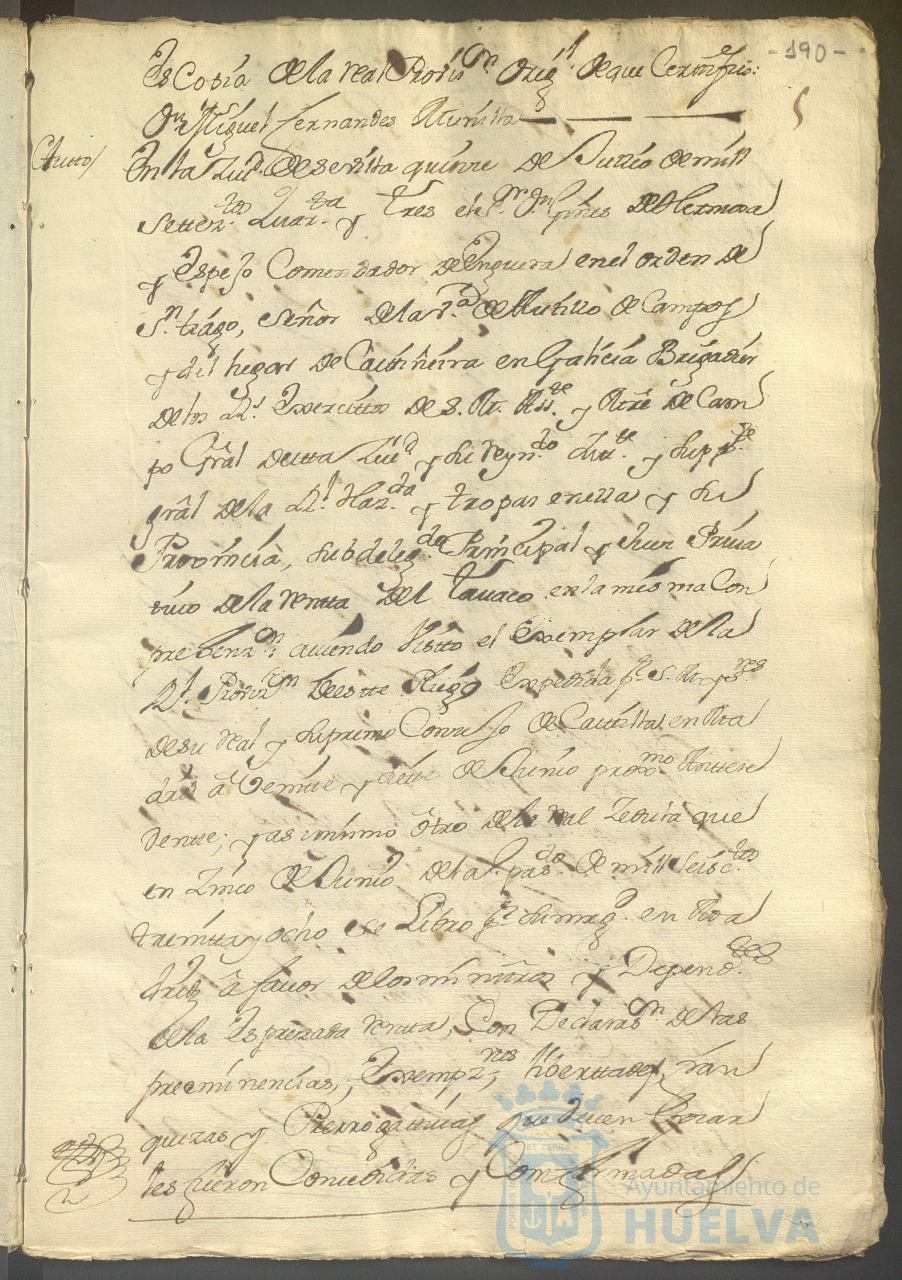 -190-
Es Copia de la real Provis.on orig.l de que Certifico:
Dn Miguel Fernandes Munilla
5
Autto/
En la Ziu.d de sevilla quinze de Jullio de mill
Settez.tos Quar.ta y Tres el S.r D.n Gines de Hermosa
y Espejo Comendador de Enguera en el orden de
S.n tiago, señor de la V.a de Autillo de Campos
y del lugar de en Galicia Brigadier
de los R.s Exercitos de S. M. Assi.te y Mre de Cam
po Grál desta Ziu.d y su reyn.do y Sup.te
grál de la R.l Haz.da y tropas en ella y su
Provincia, subdeleg.do Principal y Juez Priua
tiuo de la rentta del Tauaco en la misma Com
prehenz.on; auiendo Visto el Exemplar de la
R.l Proviz.on de este Pliego Expedida p.r S. M. y s.res
de su real y supremo Consejo de Castilla en Ma
drid â Veinte y siette de Junio prox.mo Antese
dentte; y asimismo ôtro de la real Zedula que
en Zinco de Junio del a.o pas.do de mill seisc.tos
treintta y ocho se Libro p.r su mag.d en Ma
drid â favor de los ministros y Depend.tes
de la Espresada rentta, Con Declaras.on de las
preeminencias, Exempz.nes, libertades, fran
quezas y Prerrogattiuas que deuen Gozar
les fueron Consedidas y Comfirmadas
ET TERRA
Ayuntamiento de
HUELVA